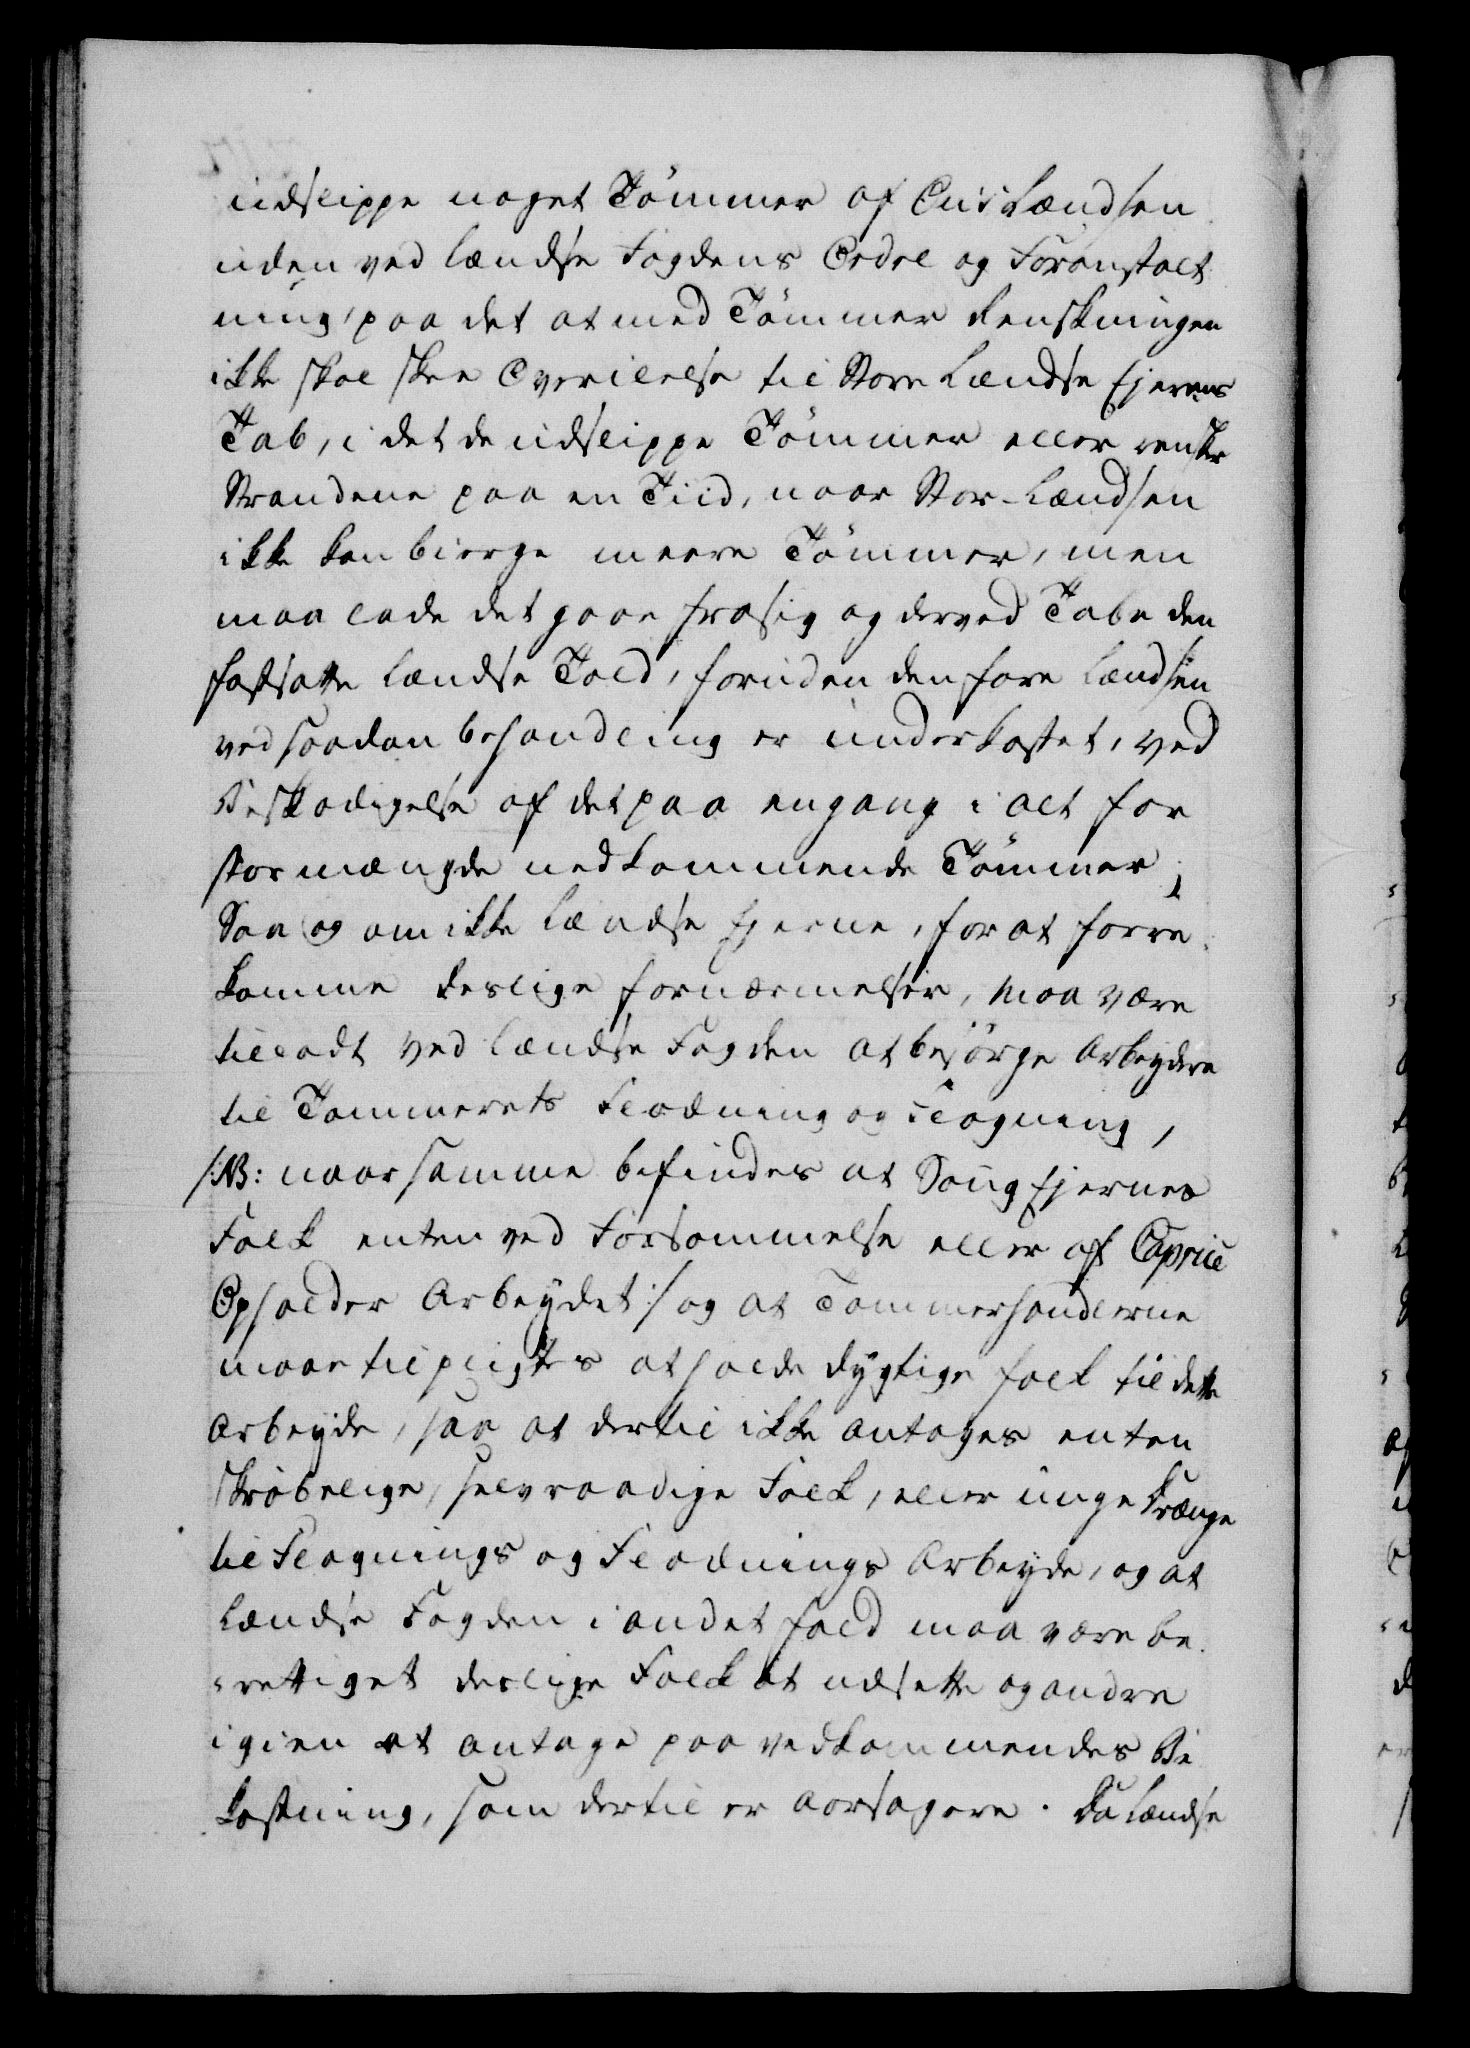 udslippe noget Tömmer af Cuislændsen
uden ved Lændse Fogdens Ordre og Foranstalt
ning, paa det at med Tömmer Renskningen
ikke skal skee Overilelse til Store Lændse Ejernes
Tab, i det de udslippe Tömmer eller renske
Strandene paa en Tiid, naar Stor-Lændsen
ikke kan bierge meere Tömmer, men
maa lade det gaae fra sig og derved Tabe den
fastsatte Lændse Told, foruden den fare Lændsen
ved saadan behandling er underkastet, ved
Beskadigelse af det paa engang i alt for
stor mængde nedkommende Tömmer;
Saa og om ikke Lændse Ejerne, for at forre
komme deslige fornærmelser, maa være
tilladt ved Lændse Fogden at besörge Arbeydere
til Tommerets Flodning og Flogning,
/:NB: naar samme befindes at Saug Ejernes
Folk enten ved Forsommelse eller af Caprice
Opholder Arbeydet:/ og at Tommerhandlerne
maae tilpligtes at holde dygtige folk til dette
Arbeyde, saa at dertil ikke antages enten
skröbelige, selvraadige Folk, eller unge Drænge
til Flognings og Flodnings Arbeyde, og at
Lændse Fogden i andet fald maa være be
-rettiget deslige Folk at udsette og andre
igien at antage paa vedkommendes Be
kostning, som dertil er Aarsagere. Da Lændse